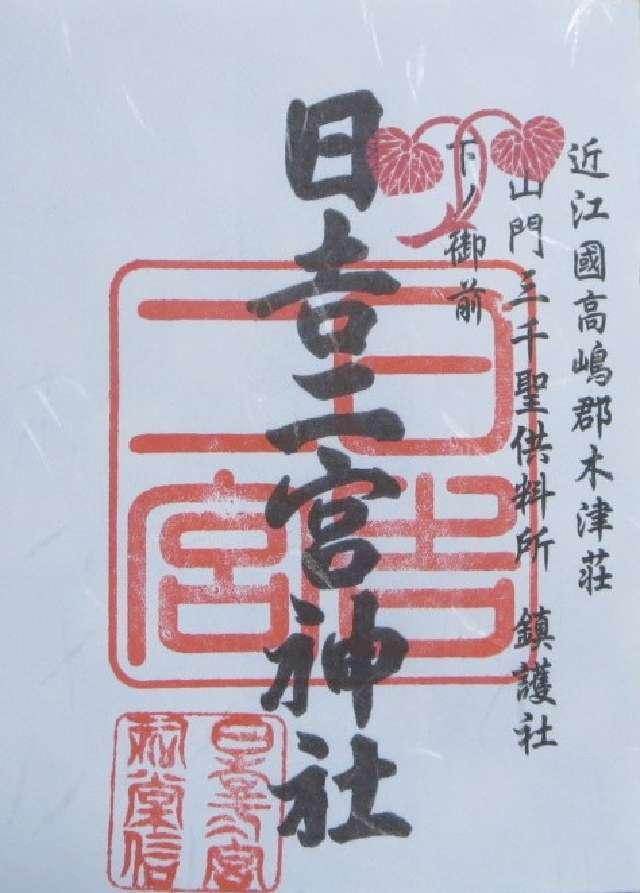 近江國高嶋郡木津荘
山門三千聖供料所 鎮護社
下ノ御前
日吉二宮神社
日吉
二宮